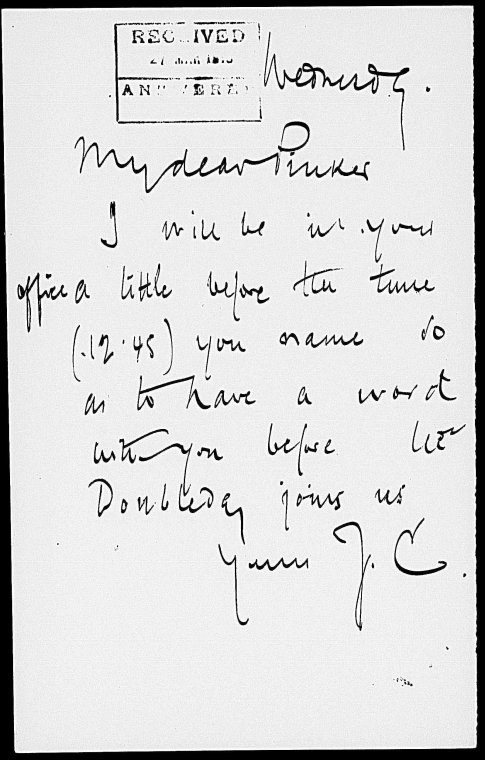 RECEIVED
27 MAR
ANSWERED
Wednesday.
My dear Pinker
I will be in your
office a little before the time
(12.45) you name so
as to have a word
with you before Mr
Doubleday joins us
Yours J. C.